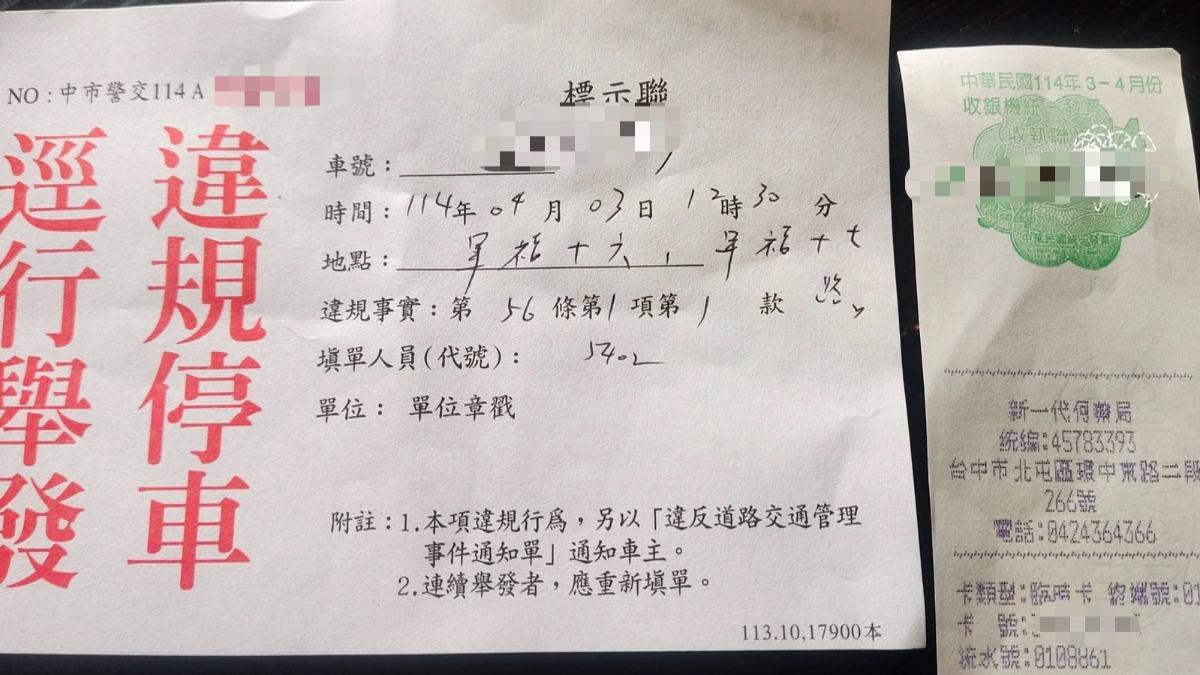 NO:中市警交114A
標示聯
違規停車
逕行舉發
車號:
時間:114年04月03日12時30分
地點:軍福十六,軍福十七
路
違規事實:第56條第1項第1款
填單人員(代號):5402
單位:單位章戳
附註:1.本項違規行為,另以「違反道路交通管理
事件通知單」通知車主。
2.連續舉發者,應重新填單。
113.10,17900本
中華民國114年3-4月份
收銀機統一發票
收執聯
新一代何藥局
統編:45783393
台中市北屯區環中東路二段
266號
電話:0424364366
卡類型:臨時卡 終端號:01
卡 號:
流水號:0108861